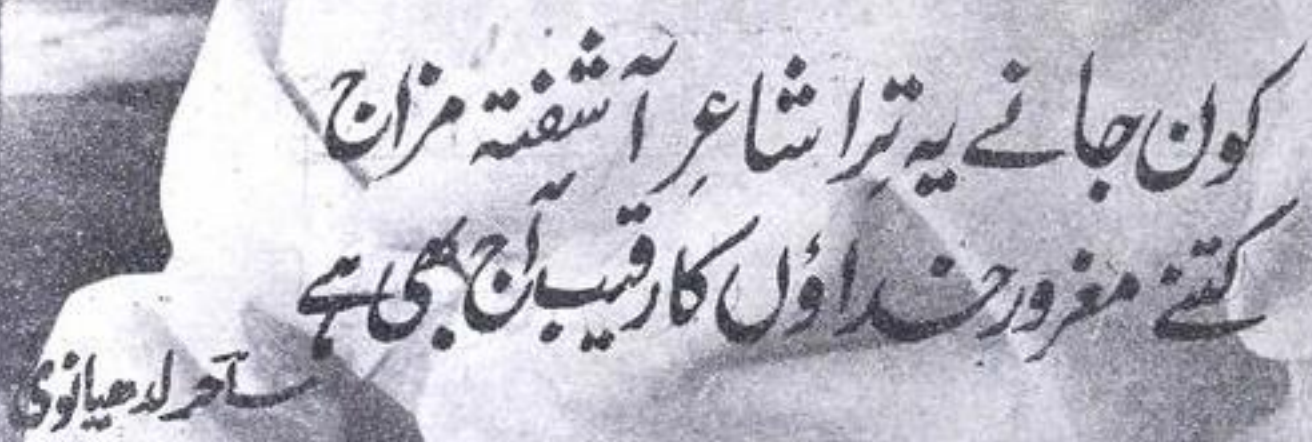 کون جانے یہ تِرا شاعرِ آشفتہ مزاج
کتنے مغرور خداؤں کا رقیب آج بھی ہے
ساحر لدھیانوی